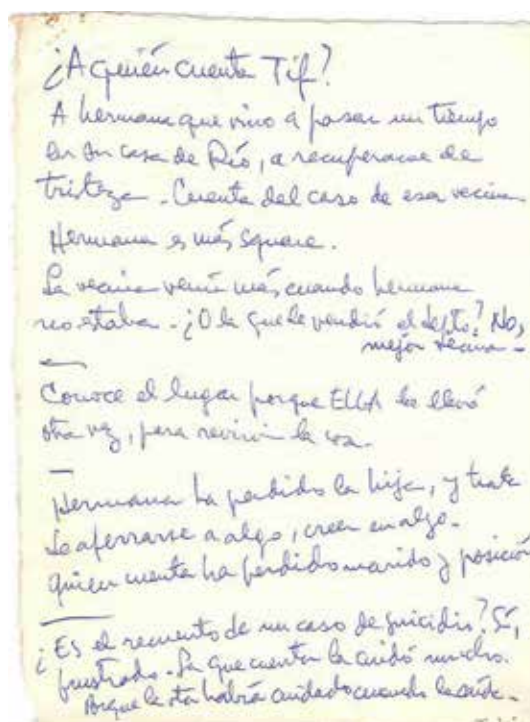 ¿A quién cuenta Tif?
A hermana que vino a pasar un tiempo
en su casa de Río, a recuperarse de
tristeza. Cuenta del caso de esa vecina
Hermana es más square.
La vecina venía más cuando hermana
no estaba. ¿O la que le vendió el depto? No,
mejor vecina.
Conoce el lugar porque ELLA la llevó
otra vez, para revivir la cosa.
Hermana ha perdido la hija, y trata
de aferrarse a algo, creer en algo.
Quien cuenta ha perdido marido y posición
¿Es el recuento de un caso de suicidio? Sí,
frustrado. La que cuenta la cuidó mucho.
Porque la habrá cuidado cuando la